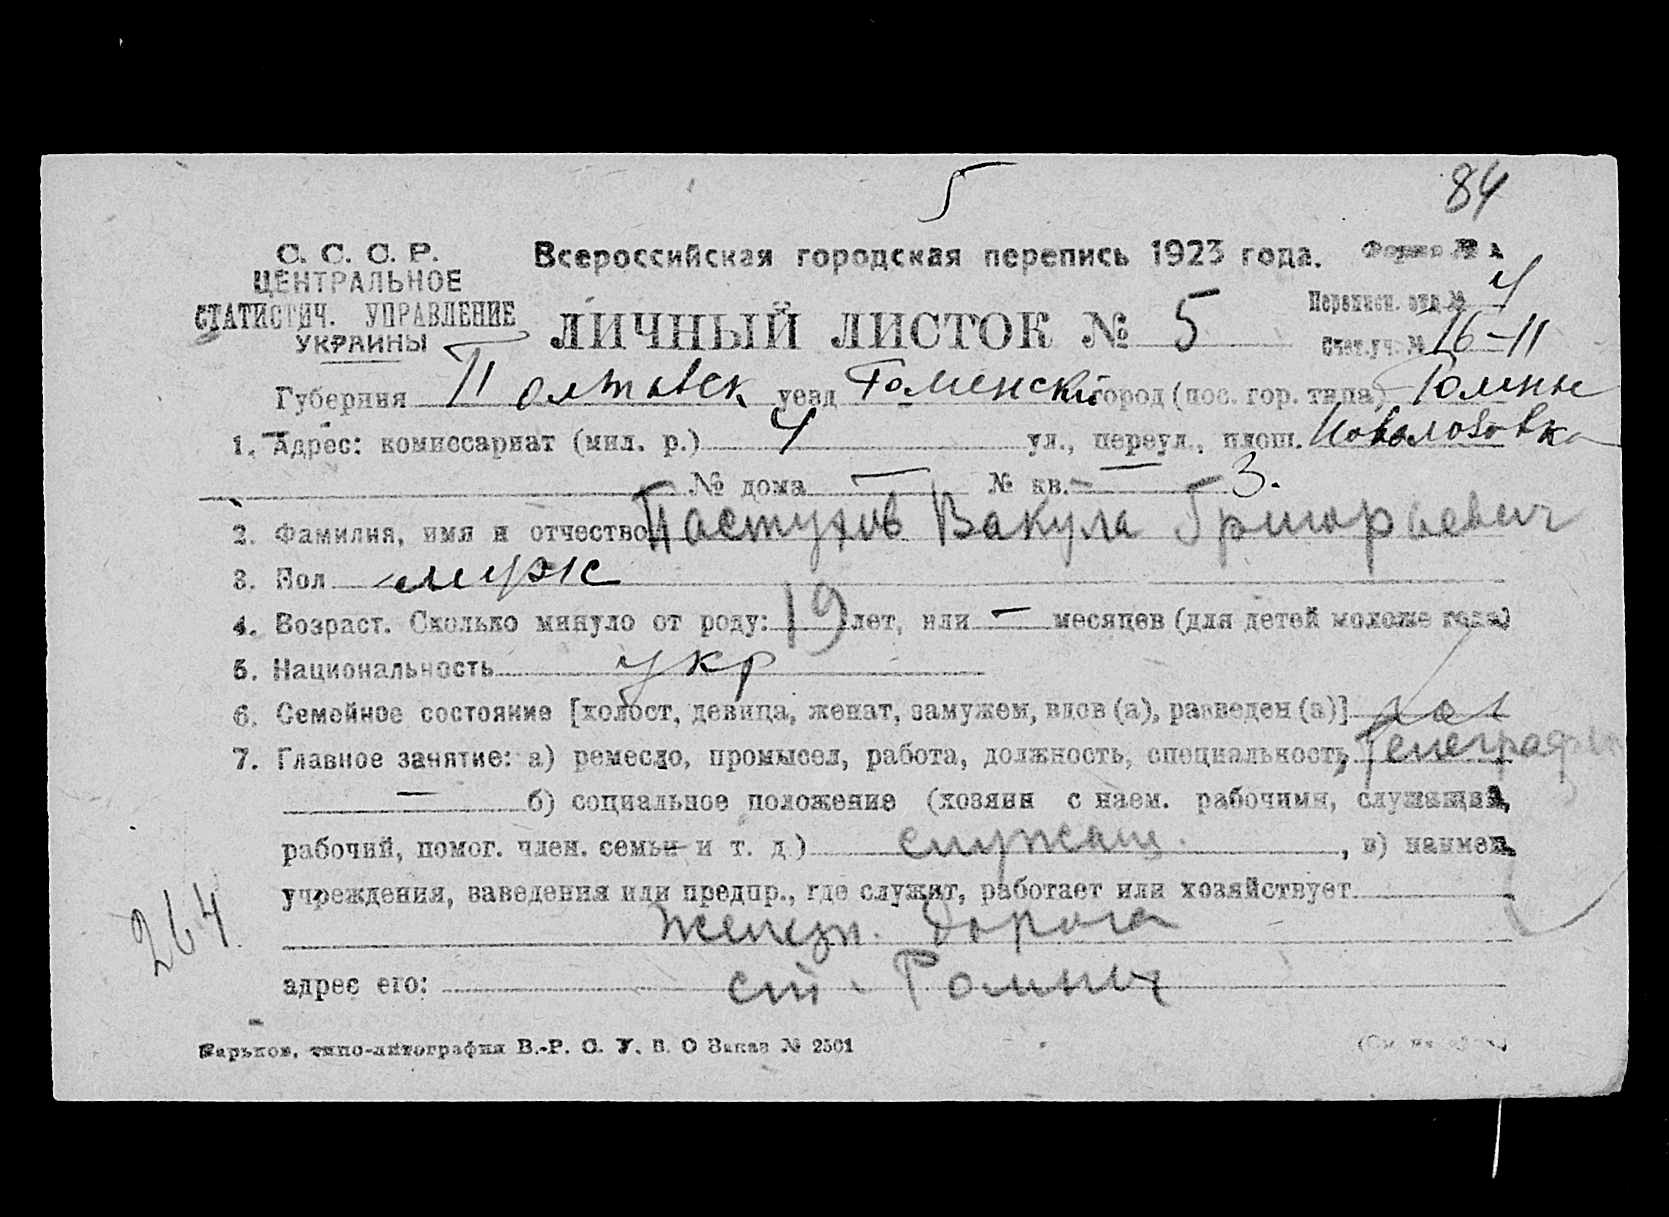 5
84
С. С. С. Р.
ЦЕНТРАЛЬНОЕ
СТАТИСТИЧ. УПРАВЛЕНИЕ
УКРАИНЫ
Всероссийская городская перепись 1923 года.
Форма № А
ЛИЧНЫЙ ЛИСТОК № 5
Переписн. отд. № 4
Счет. уч. № 16-11
Губерния Полтавск уезд Роменский город (пос. гор. типа) Ромны
1. Адрес: комиссариат (мил. р.) 4 ул., переул., площ.
№ дома — № кв. — 3.
2. Фамилия, имя и отчество Пастухов Вакула Григорьевич
3. Пол муж
4. Возраст. Сколько минуло от роду: 19 лет, или — месяцев (для детей моложе года)
5. Национальность укр
6. Семейное состояние [холост, девица, женат, замужем, вдов (а), разведен (а)] хол
7. Главное занятие: а) ремесло, промысел, работа, должность, специальность Телеграфист
— б) социальное положение (хозяин с наем. рабочими, служащий,
рабочий, помог. член. семьи и т. д.) служащ. , в) наимен.
учреждения, заведения или предпр., где служит, работает или хозяйствует
Железн. дорога
адрес его: ст. Ромны
264
Харьков, типо-литография В.-Р. С. У. В. О Заказ № 2501